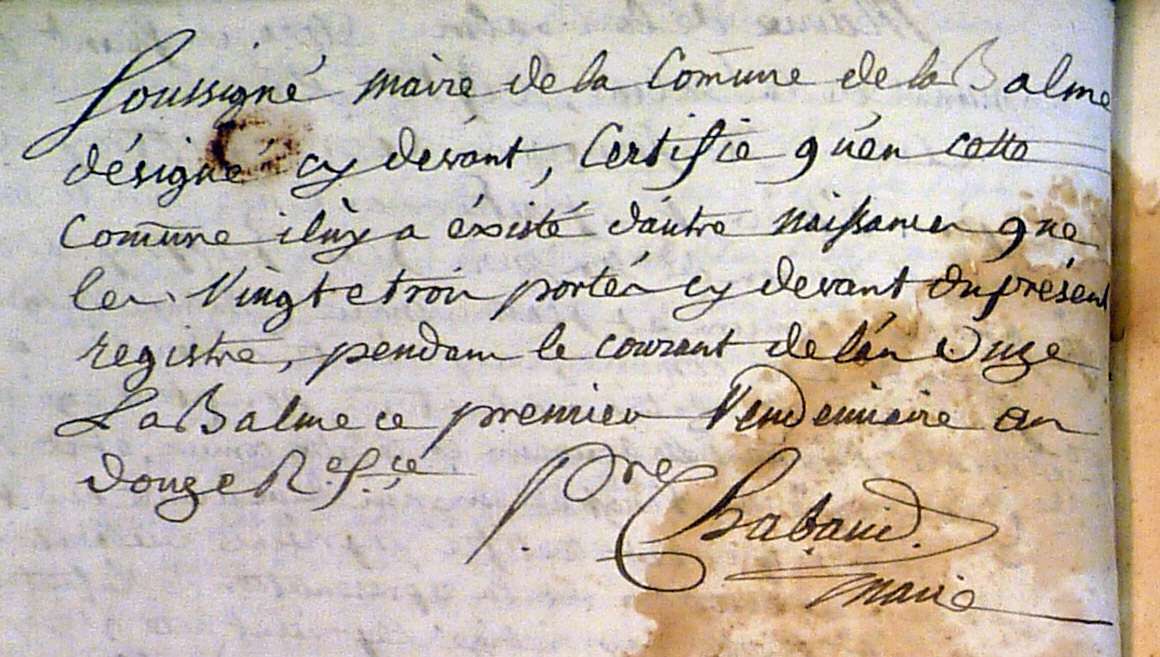 Soussigné maire de la Comūne de la Balme
désigné cy dévant, Certifie qu'en cette
Comūne il n'y a éxisté d'autre naissances que
les vingt et trois portés cy devant du présent
registre, pendant le courant de l'an Onze
La Balme ce premier Vendemiaire an
douze R.ᵉ f.ᶜᵉ
P.ʳᵉ Chabaud.
maire